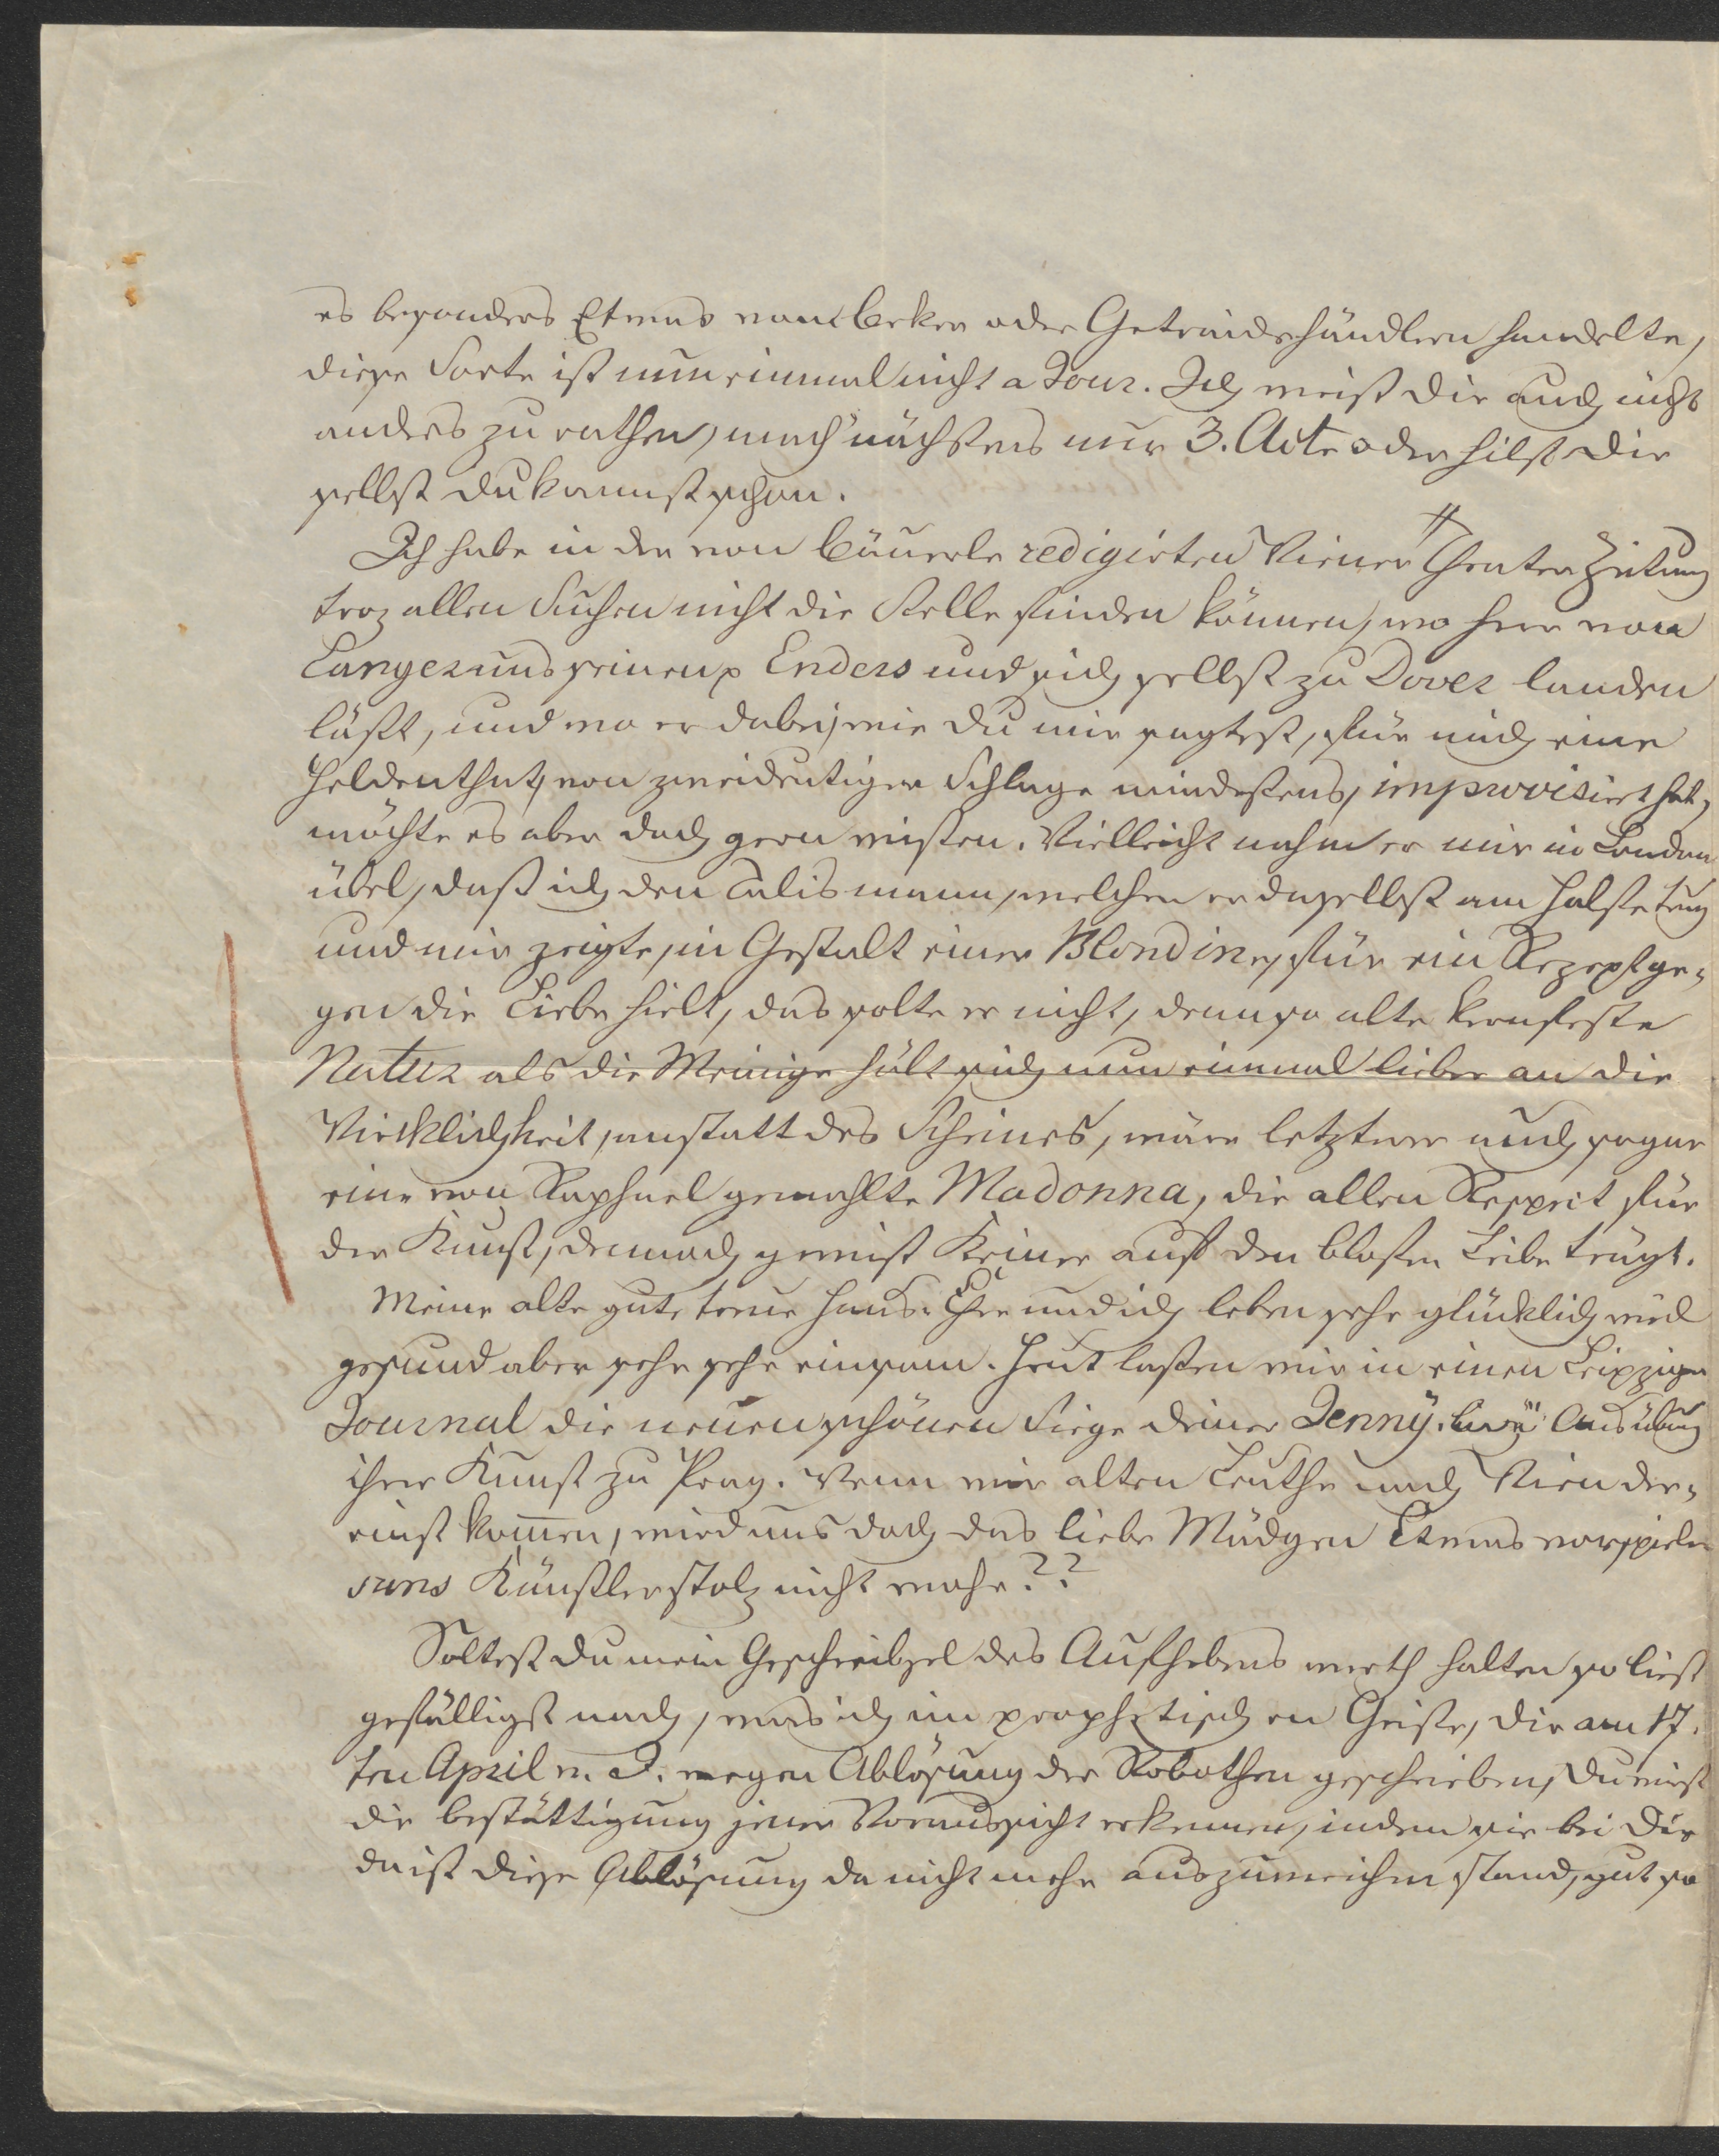 es besonders Etwas von Beker oder Getraidehändlern handelte,
diese Sorte ist nun einmal nicht a Jour. Ich weiß dir auch nichts
anders zu rathen, mach' nächstens nur 3. Acte oder hilf dir
selbst du kannst schon.
Ich habe in der von Bäuerle redigirten Wiener Theater Zeitung
troz allen Suchen nicht die Stelle finden können, wo Herr von
Langer uns seinen Enders und sich selbst zu Dover landen
läßt, und wo er dabey wie du mir sagtest, für mich eine
Heldenthat, von zweideutigen Schlage mindestens, improvisiert hat,
möchte es aber doch gern wissen. Vielleicht nahm er mir in London
übel, daß ich den Talismann, welchen er daselbst am Halse trug
und mir zeigte, in Gestalt einer Blondine, für ein Rezept ge-
gen die Liebe hielt, das solte er nicht, denn so alte kernfeste
Natur als die Meinige hält sich nun einmal lieber an die
Wircklichkeit, anstatt des Scheines, wäre letzterer auch sogar
eine von Raphael gemahlte Madonna, die allen Respect für
der Kunst, dennoch gewist Keiner auf den blosen Leibe trägt.
Meine alte gute treue Haus-Ehre und ich leben sehr glücklich und
gesund aber sehr sehr einsam. Heut lasen wir in einen Leipziger
Journal die neuen schönen Siege deiner Jenny, bey Ausübung
ihrer Kunst zu Prag. Wenn wir alten Leuthe nach Wien der-
einst kommen, wird uns doch das liebe Mädgen Etwas vorspielen
sans Künstlerstolz nicht wahr??
Soltest du mein Geschreibsel des Aufhebens werth halten so lies
gefälligst nach, was ich im prophetischen Geiste, dir am 17.
ten April v. J. wegen Ablösung der Robothen geschrieben, du wirst
die bestättigung jener Voraussicht erkennen, indem sie bei dir
da ist diese Ablösung da nicht mehr auszuweichen stand, gut so